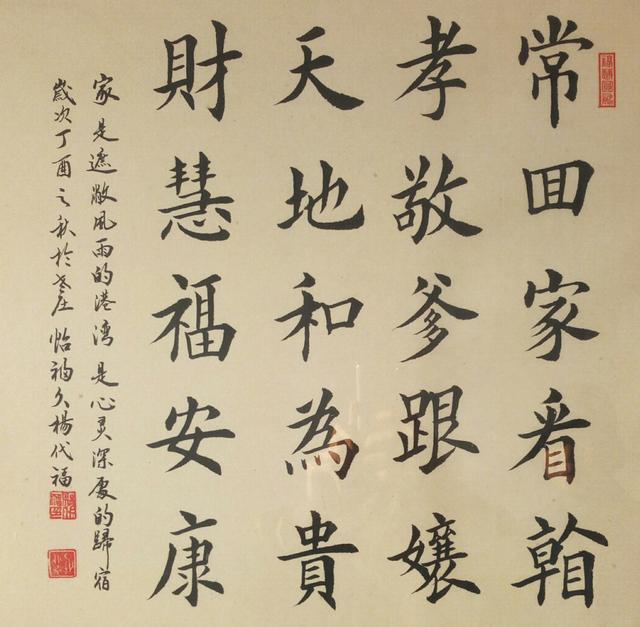 常囬家看
孝敬爹跟孃
天地和為貴
財慧福安康
家是遮敝風雨的港灣 是心灵深處的歸宿
歲次丁酉之秋於 楊代福